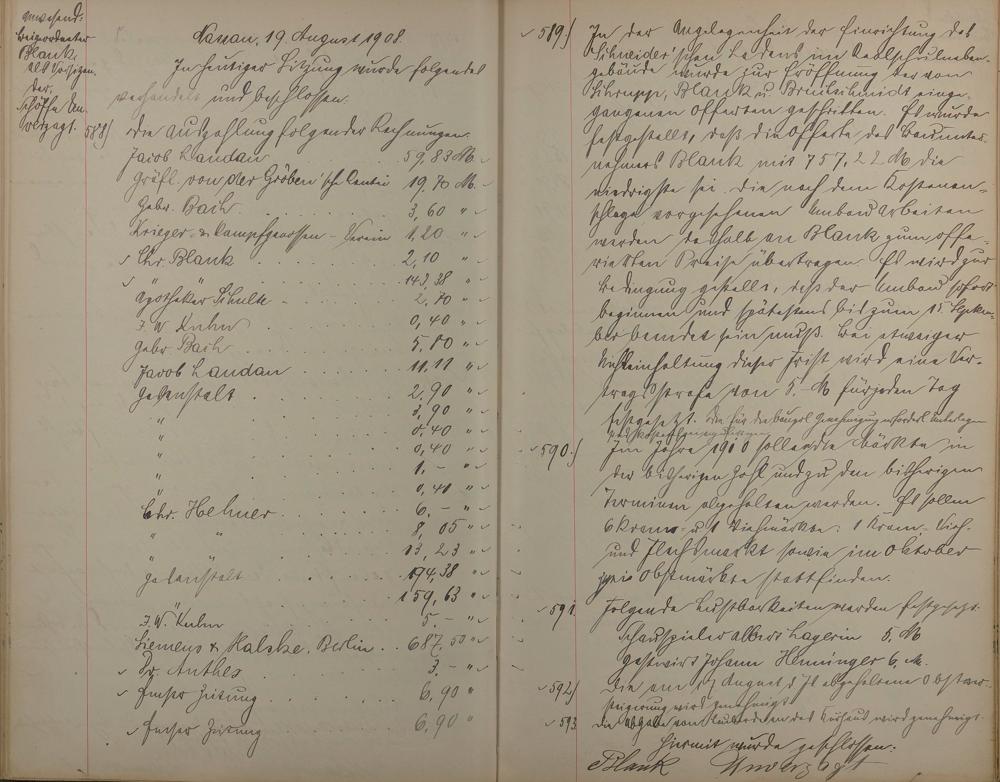 anwesend:
Beigeordneter
Blank,
als Vorsitzen-
der.
Schöffe Un-
verzagt.
Nassau, 19 August 1908.
In heutiger Sitzung wurde folgendes
verhandelt und beschlossen.
588) Die Auszahlung folgender Rechnungen.
Jacob Landau 59,83 M.
Gräfl. von der Gröben'sche Rentei 19,70 M.
Gebr. Bach. 3,60 "
Krieger- & Kampfgenossen-Verein 1,20 "
Chr. Blank 2,10 "
" " 143,38 "
Apotheker Schulte 2,70 "
J. W. Kuhn 0,40 "
Gebr. Bach 5,80 "
Jacob Landau 11,11 "
Gasanstalt 2,90 "
" 3,90 "
0,40 "
" 0,40 "
" 1,- "
" 0,40 "
Chr. Hehner 6,- "
8,05 "
" " 13,23 "
Gasanstalt 174,38 "
" 159,63 "
J. W. Kuhn 5,- "
Siemens & Halske, Berlin 687,50 "
Dr. Anthes 3,- "
Emser Zeitung 6,90 "
Emser Zeitung 6,90 "
589) In der Angelegenheit der Einrichtung des
Schneider'schen Ladens im Realschulneben-
gebäude wurde zur Eröffnung der von
Schrupp, Blank u. einge-
gangenen Offerten geschritten. Es wurde
festgestellt, daß die Offerte des Bauunter-
nehmers Blank mit 757,22 M die
niedrigste sei. Die nach dem Kostenan-
schlage vorgesehenen Umbau Arbeiten
werden deshalb an Blank zum offe-
rierten Preise übertragen. Es wird zur
Bedingung gestellt, daß der Umbau sofort
beginnen und spätestens bis zum 15. Septem-
ber beendet sein muß. Bei etwaiger
Nichteinhaltung dieser Frist wird eine Ver-
tragsstrafe von 5.- M für jeden Tag
festgesetzt. Die für die baupol. Genehmigung erforderl. Unterlagen
590.) Im Jahre 1910 sollen die Märkte in
der bisherigen Zahl und zu den bisherigen
Terminen abgehalten werden. Es sollen
6 Kram- u. 1 Viehmärkte: 1 Kram- Vieh-
und Flachsmarkt sowie im Oktober
zwei Obstmärkte stattfinden.
591 Folgende Lustbarkeiten werden festgesetzt.
Schauspieler Albert Lagerin 5. M
Gastwirt Johann Henninger 6. M.
592) Die am 17 August d. J. abgehaltene Obstver-
steigerung wird genehmigt.
593 Die Abgabe von des Kurhaus wird genehmigt.
Hiermit wurde geschlossen.
Blank Unverzagt